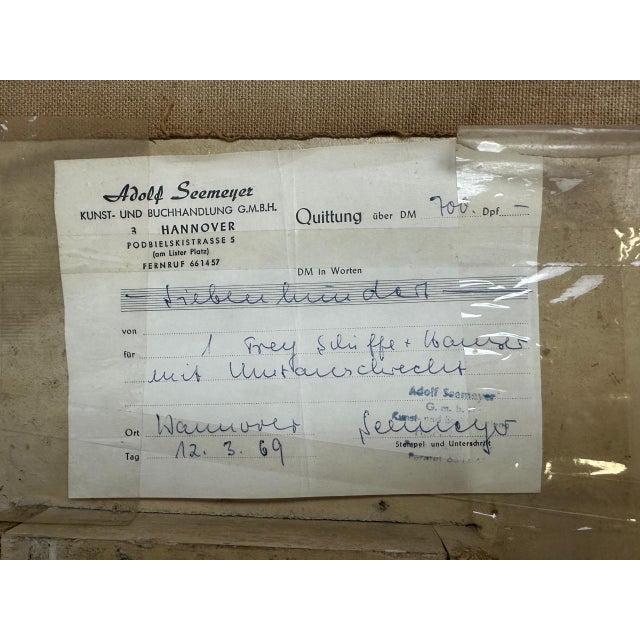 Adolf Seemeyer
KUNST- UND BUCHHANDLUNG G.M.B.H.
3 HANNOVER
PODBIELSKISTRASSE 5
(am Lister Platz)
FERNRUF 661457
Quittung über DM 700. Dpf. —
DM in Worten
— Siebenhundert —
von
für 1 Frey Schiffe +
mit Umtauschrecht
Adolf Seemeyer
G. m. b.
Kunst- und
Ort Hannover Seemeyer
Stempel und Unterschrift
Tag 12. 3. 69